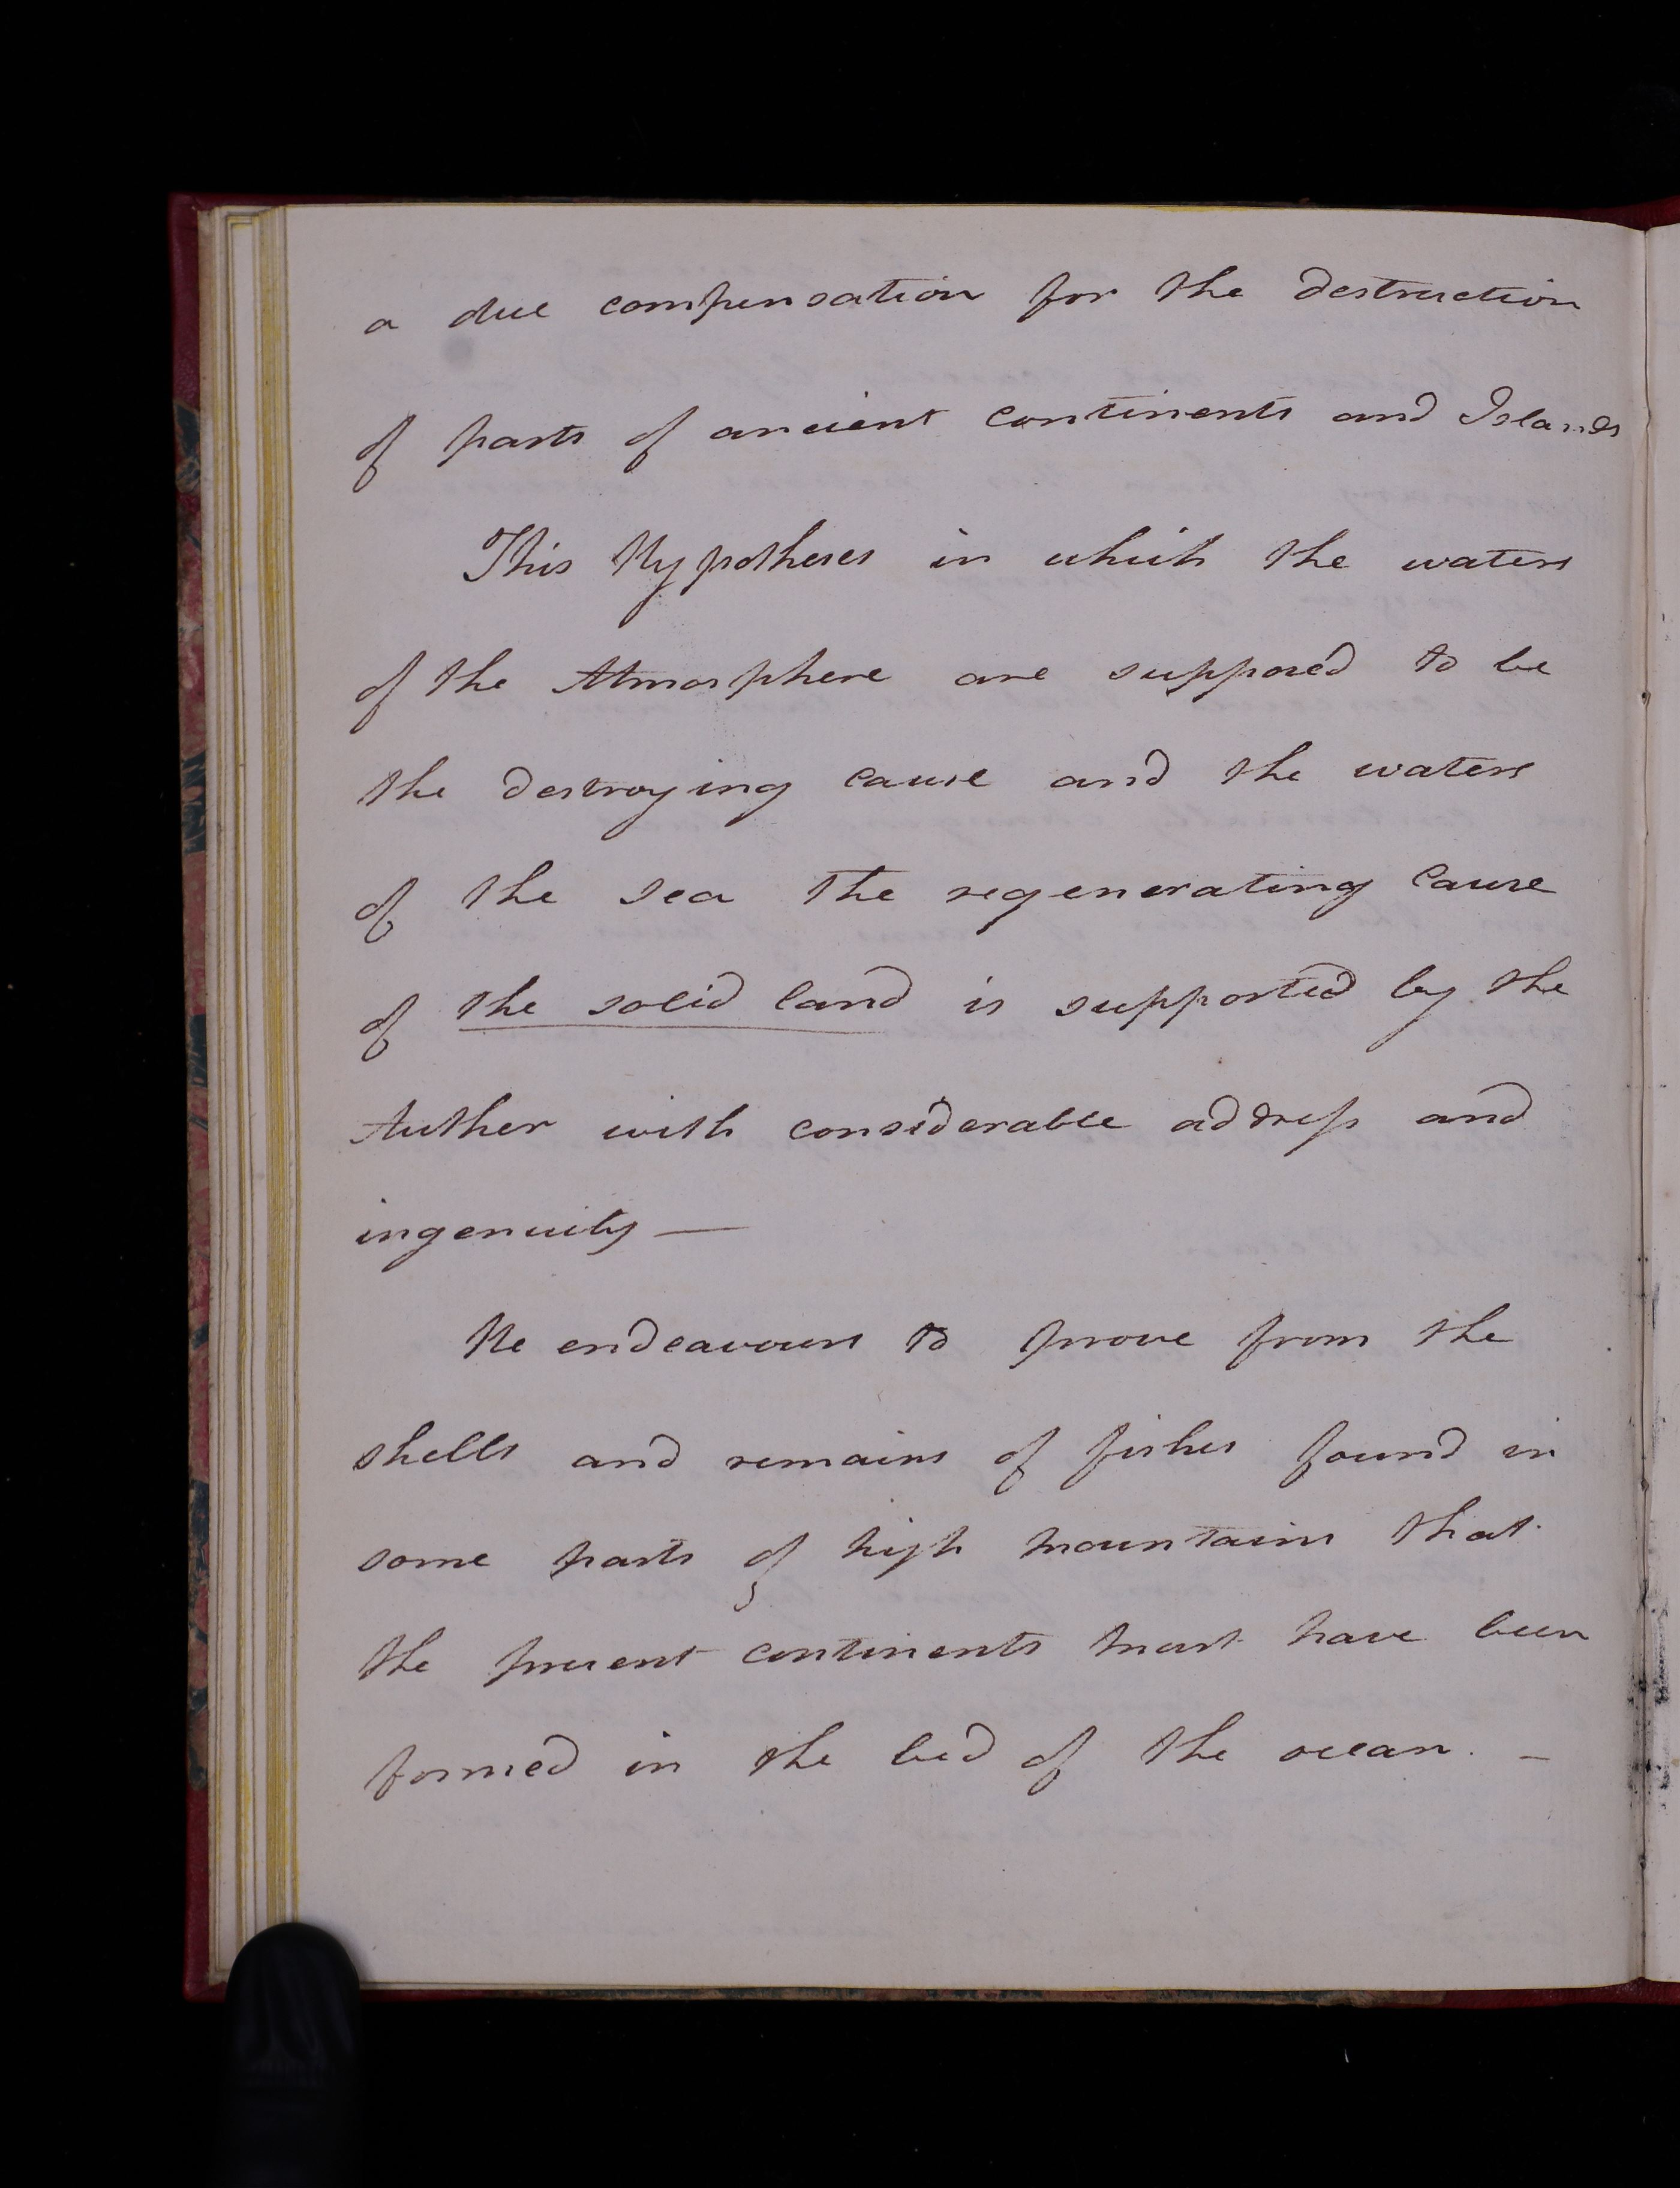 a due compensation for the destruction
of parts of ancient continents and Islands
This Hypotheses in which the waters
of the Atmosphere are supposed to be
the destroying cause and the waters
of the sea the regenerating cause
of the solid land is supported by the
Auther with considerable address and
ingenuity —
He endeavours to prove from the
shells and remains of fishes found in
some parts of high mountains that
the present continents must have been
formed in the bed of the ocean. —